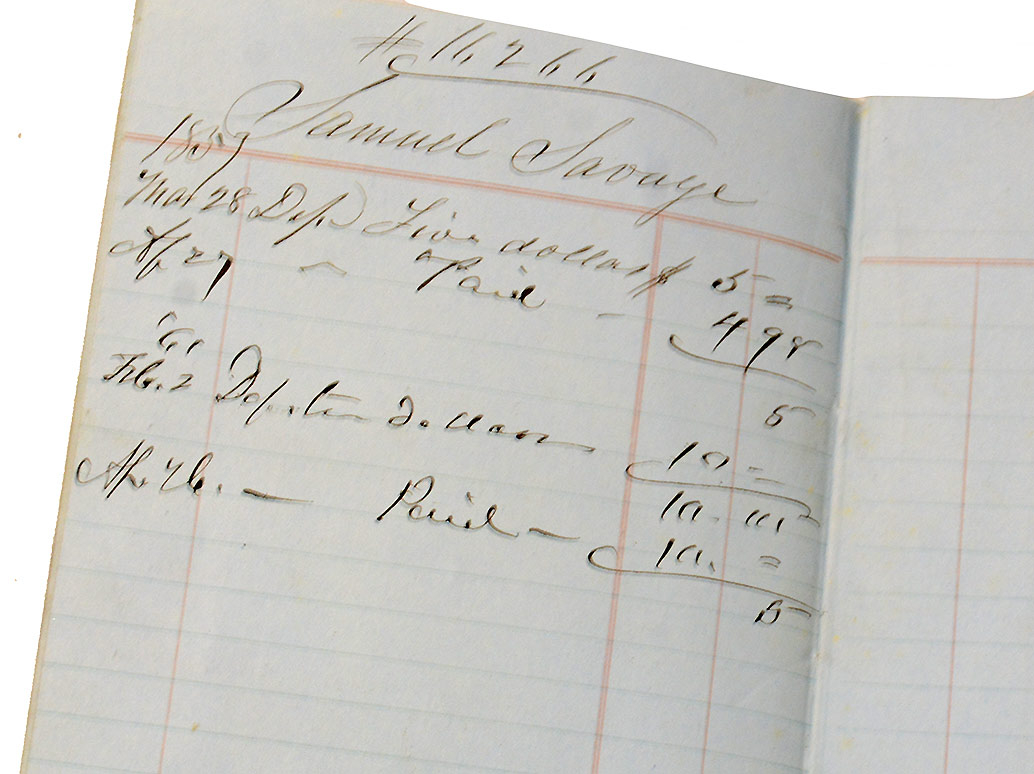 # 16266
Samuel Savage
1859
Mar 28 Dep Five dollars $ 5 =
Ap 27 " Paid - 4 98
5
Feb. 2 Dep. ten dollars 10 =
10.
Ap. 26. — Paid — 10. =
5